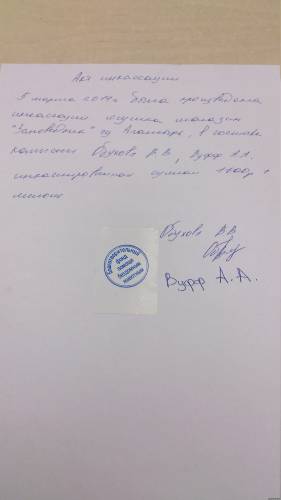 Акт инкассации
5 марта 2019г была произведена
инкассации ящика магазин
"Заповедник" гц , в составе
комиссии Обухова В.В, Вуфф А.А.
инкассированная сумма 1100р +
мелочь
Обухова В.В
Вуфф А.А.
Благотворительный
фонд
помощи
бездомным
животным